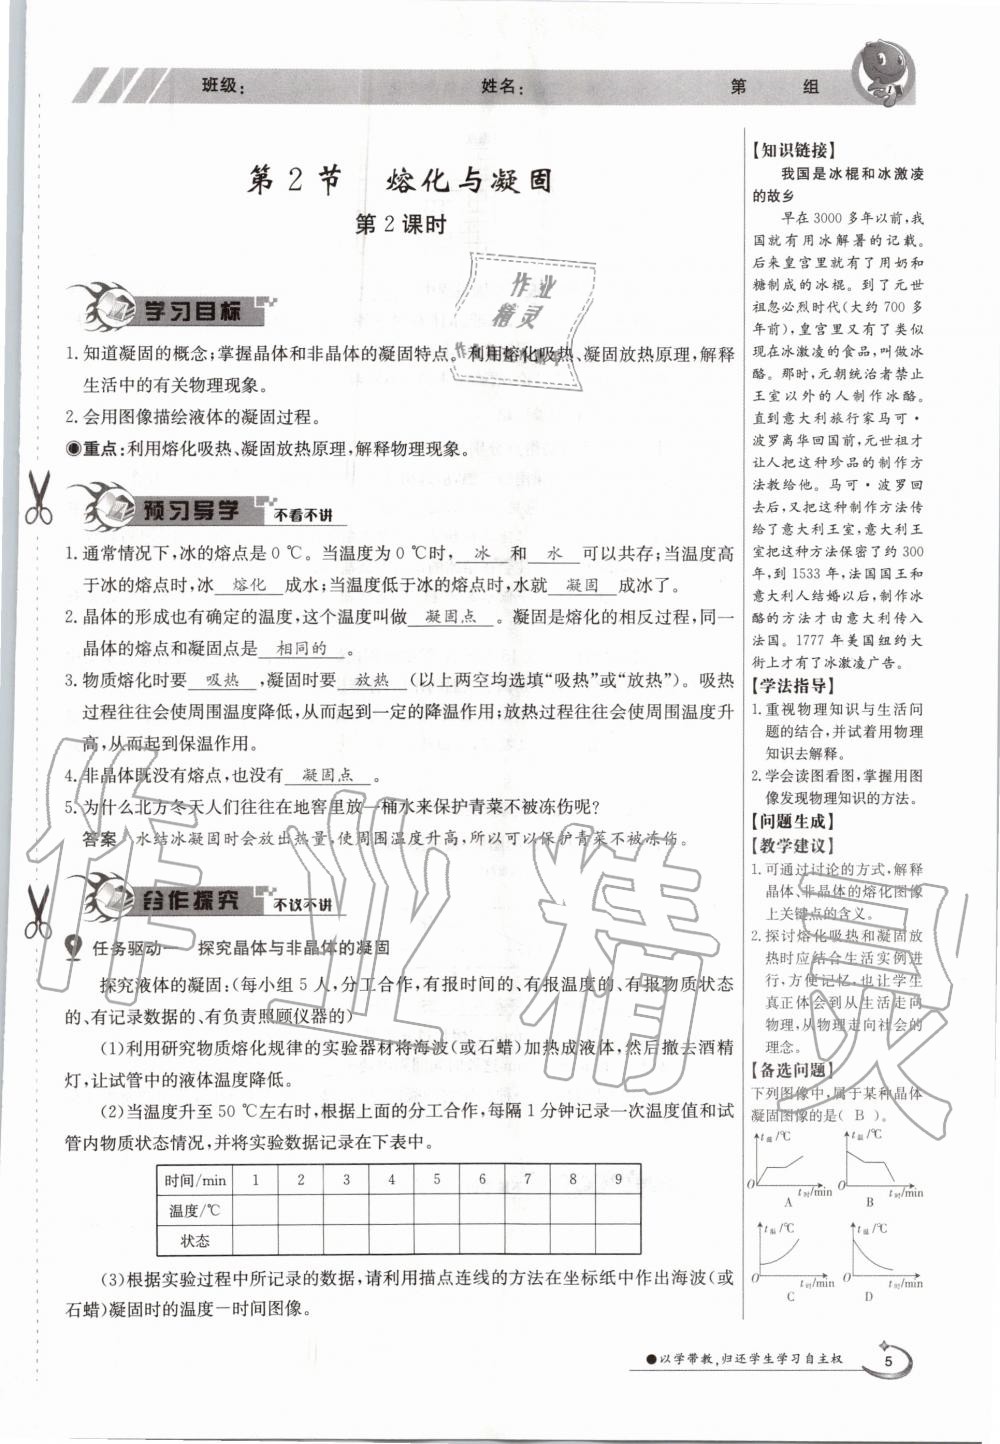 班级: 姓名: 第 组
第2节 熔化与凝固
第2课时
学习目标
1. 知道凝固的概念;掌握晶体和非晶体的凝固特点。利用熔化吸热、凝固放热原理,解释
生活中的有关物理现象。
2. 会用图像描绘液体的凝固过程。
◉重点:利用熔化吸热、凝固放热原理,解释物理现象。
预习导学 不看不讲
1. 通常情况下,冰的熔点是 0 ℃。当温度为 0 ℃时, 冰 和 水 可以共存;当温度高
于冰的熔点时,冰 熔化 成水;当温度低于冰的熔点时,水就 凝固 成冰了。
2. 晶体的形成也有确定的温度,这个温度叫做 凝固点 。凝固是熔化的相反过程,同一
晶体的熔点和凝固点是 相同的 。
3. 物质熔化时要 吸热 ,凝固时要 放热 (以上两空均选填“吸热”或“放热”)。吸热
过程往往会使周围温度降低,从而起到一定的降温作用;放热过程往往会使周围温度升
高,从而起到保温作用。
4. 非晶体既没有熔点,也没有 凝固点 。
5. 为什么北方冬天人们往往在地窖里放一桶水来保护青菜不被冻伤呢?
答案 水结冰凝固时会放出热量,使周围温度升高,所以可以保护青菜不被冻伤。
合作探究 不议不讲
任务驱动一 探究晶体与非晶体的凝固
探究液体的凝固:(每小组 5 人,分工合作,有报时间的、有报温度的、有报物质状态
的、有记录数据的、有负责照顾仪器的)
(1)利用研究物质熔化规律的实验器材将海波(或石蜡)加热成液体,然后撤去酒精
灯,让试管中的液体温度降低。
(2)当温度升至 50 ℃左右时,根据上面的分工合作,每隔 1 分钟记录一次温度值和试
管内物质状态情况,并将实验数据记录在下表中。
时间/min 1 2 3 4 5 6 7 8 9
温度/℃
状态
(3)根据实验过程中所记录的数据,请利用描点连线的方法在坐标纸中作出海波(或
石蜡)凝固时的温度—时间图像。
【知识链接】
我国是冰棍和冰激凌
的故乡
早在 3000 多年以前,我
国就有用冰解暑的记载。
后来皇宫里就有了用奶和
糖制成的冰棍。到了元世
祖忽必烈时代(大约 700 多
年前),皇宫里又有了类似
现在冰激凌的食品,叫做冰
酪。那时,元朝统治者禁止
王室以外的人制作冰酪。
直到意大利旅行家马可·
波罗离华回国前,元世祖才
让人把这种珍品的制作方
法教给他。马可·波罗回
去后,又把这种制作方法传
给了意大利王室,意大利王
室把这种方法保密了约 300
年,到 1533 年,法国国王和
意大利人结婚以后,制作冰
酪的方法才由意大利传入
法国。1777 年美国纽约大
街上才有了冰激凌广告。
【学法指导】
1. 重视物理知识与生活问
题的结合,并试着用物理
知识去解释。
2. 学会读图看图,掌握用图
像发现物理知识的方法。
【问题生成】
【教学建议】
1. 可通过讨论的方式,解释
晶体、非晶体的熔化图像
上关键点的含义。
2. 探讨熔化吸热和凝固放
热时应结合生活实例进
行,方便记忆,也让学生
真正体会到从生活走向
物理,从物理走向社会的
理念。
【备选问题】
下列图像中,属于某种晶体
凝固图像的是( B )。
t温/℃ t温/℃
O t时/min O t时/min
A B
t温/℃ t温/℃
O t时/min O t时/min
C D
●以学带教,归还学生学习自主权 5
作业
精灵
作业精灵